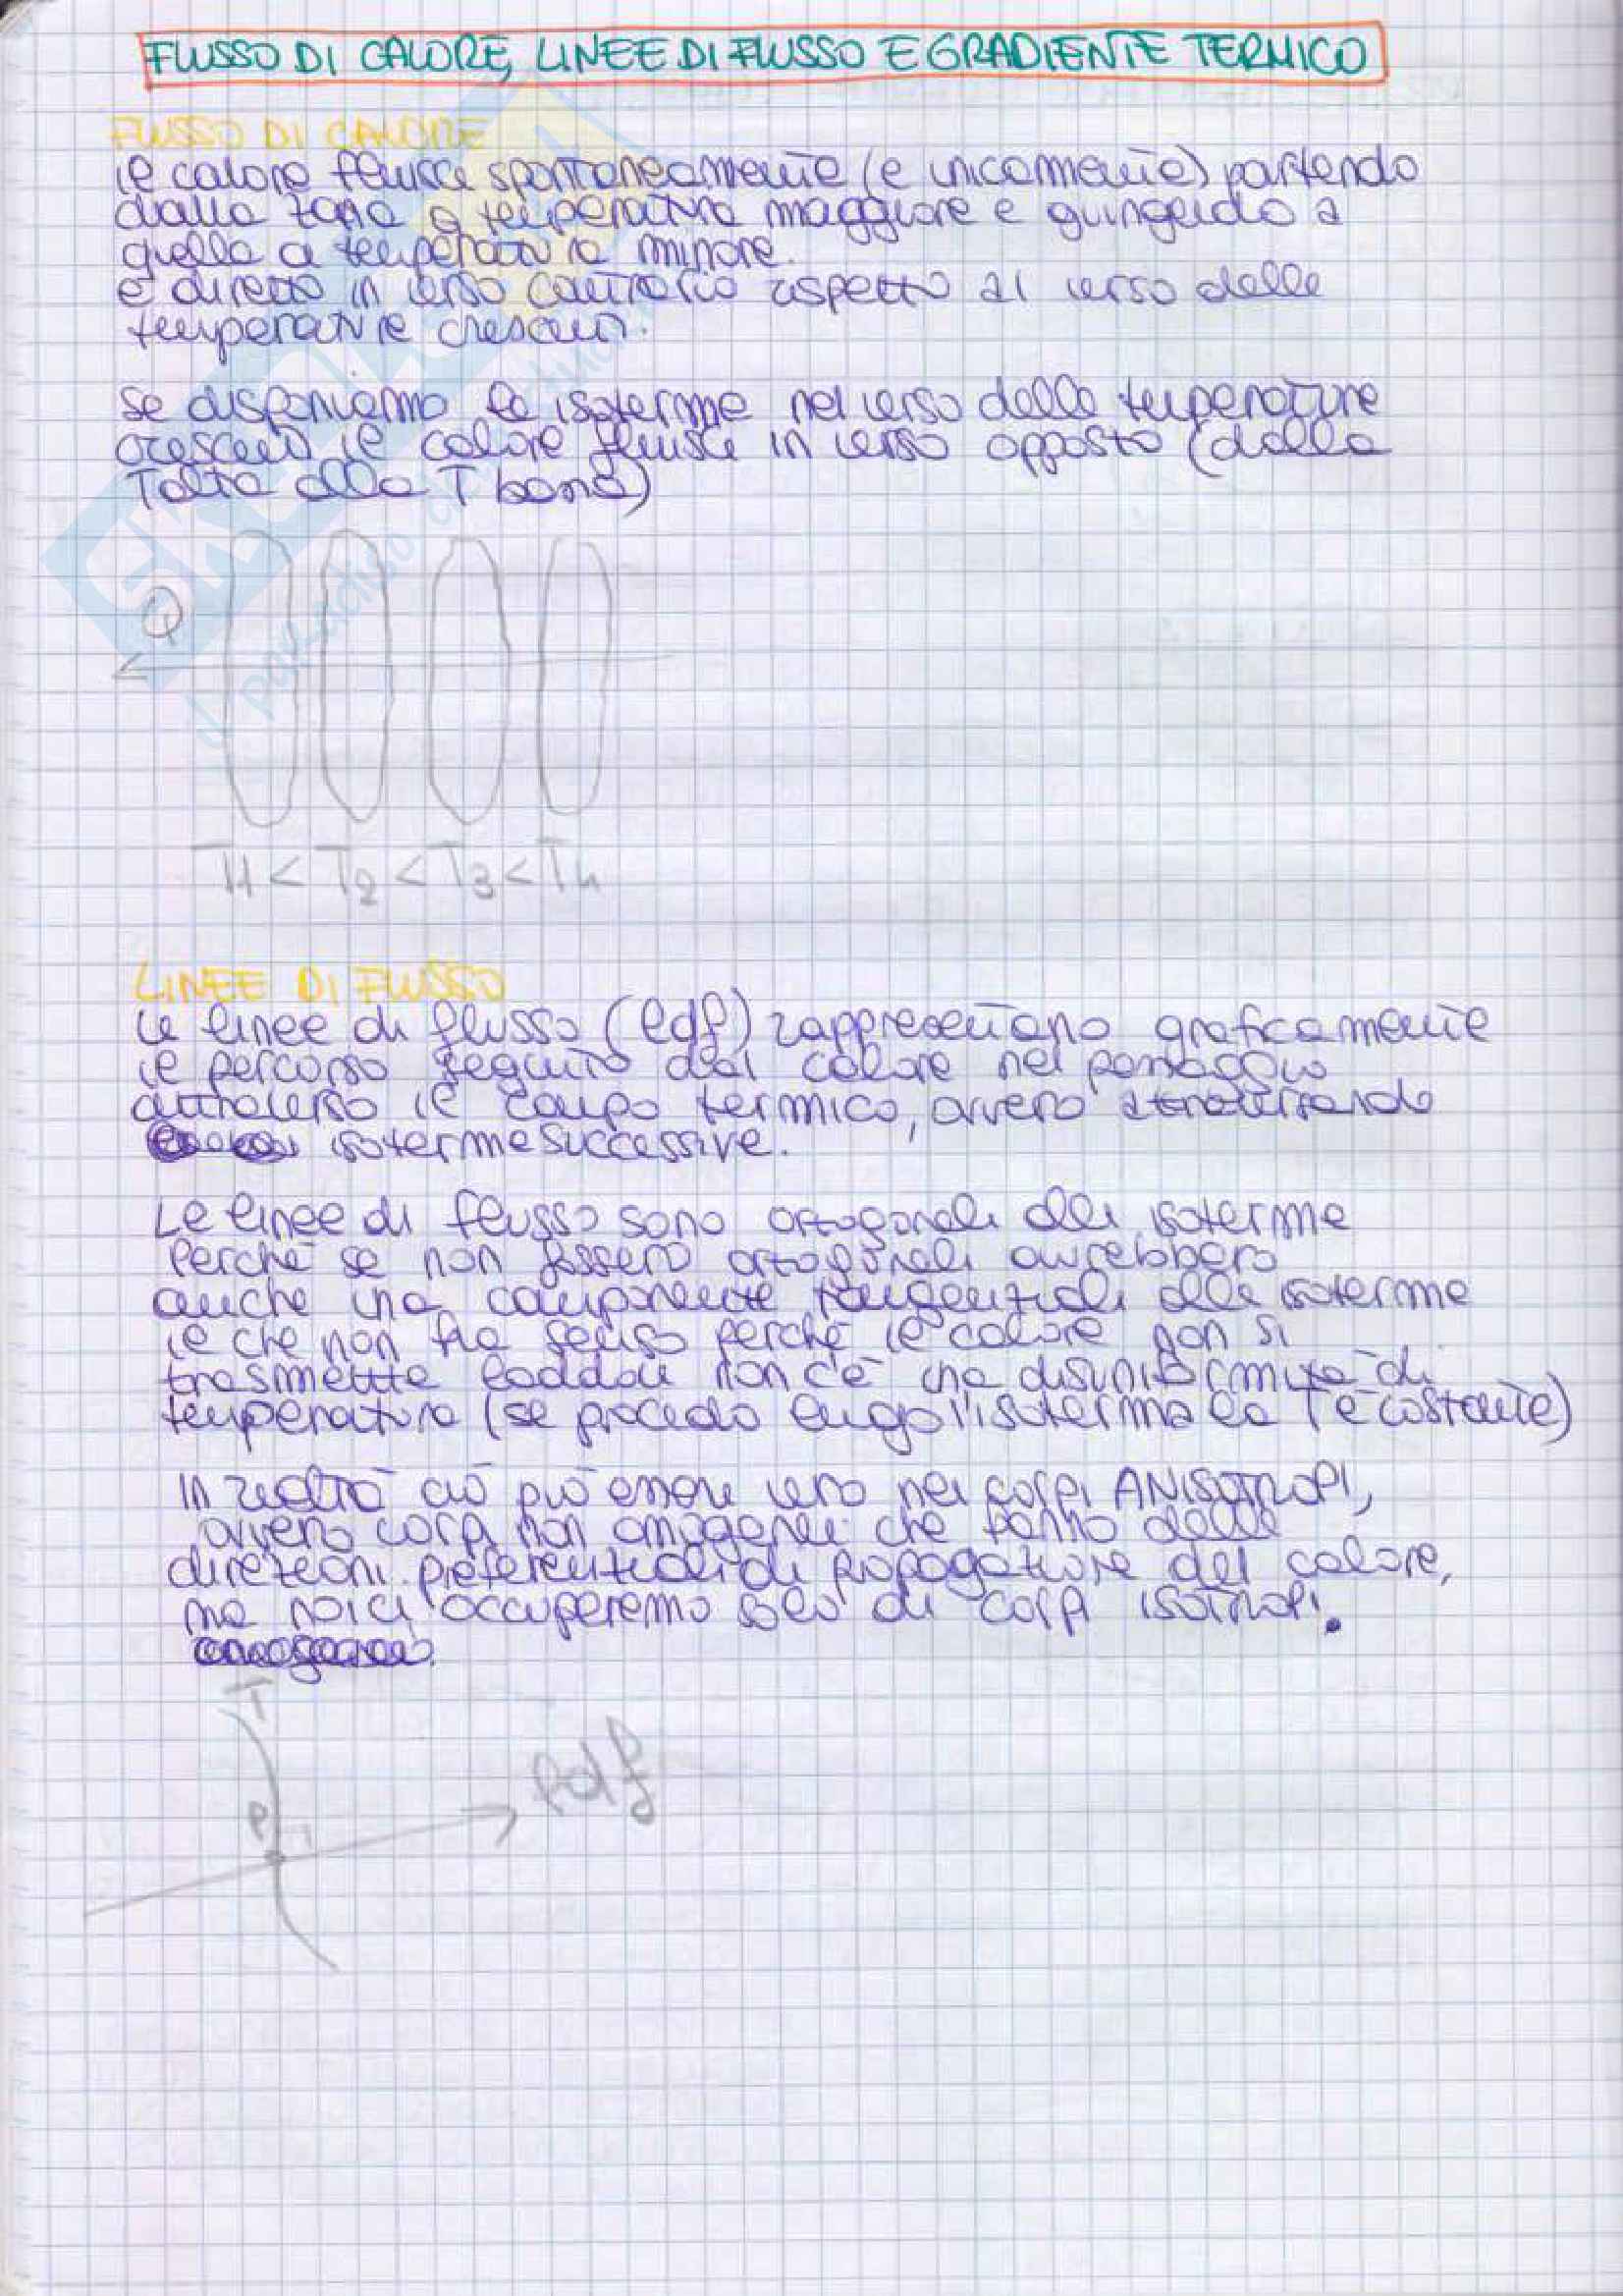 FLUSSO DI CALORE, LINEE DI FLUSSO E GRADIENTE TERMICO
FLUSSO DI CALORE
il calore fluisce spontaneamente (e unicamente) partendo
dalla zona a temperatura maggiore e giungendo a
quella a temperatura minore.
è diretto in verso contrario rispetto al verso delle
temperature crescenti.
se disponiamo le isoterme nel verso delle temperature
crescenti il calore fluisce in verso opposto (dalla
T alta alla T bassa)
Q
T1 < T2 < T3 < T4
LINEE DI FLUSSO
Le linee di flusso (ldf) rappresentano graficamente
il percorso seguito dal calore nel passaggio
attraverso il campo termico, ovvero attraversando
isoterme successive.
Le linee di flusso sono ortogonali alle isoterme
Perché se non fossero ortogonali avrebbero
anche una componente tangenziali alle isoterme
il che non ha senso perché il calore non si
trasmette laddove non c'è una disuniformità di
temperatura (se procedo lungo l'isoterma la T è costante)
In realtà ciò può essere vero nei corpi ANISOTROPI,
ovvero corpi non omogenei che hanno delle
direzioni preferenziali di propagazione del calore,
ma noi ci occuperemo solo di corpi isotropi.
T
P
ldf